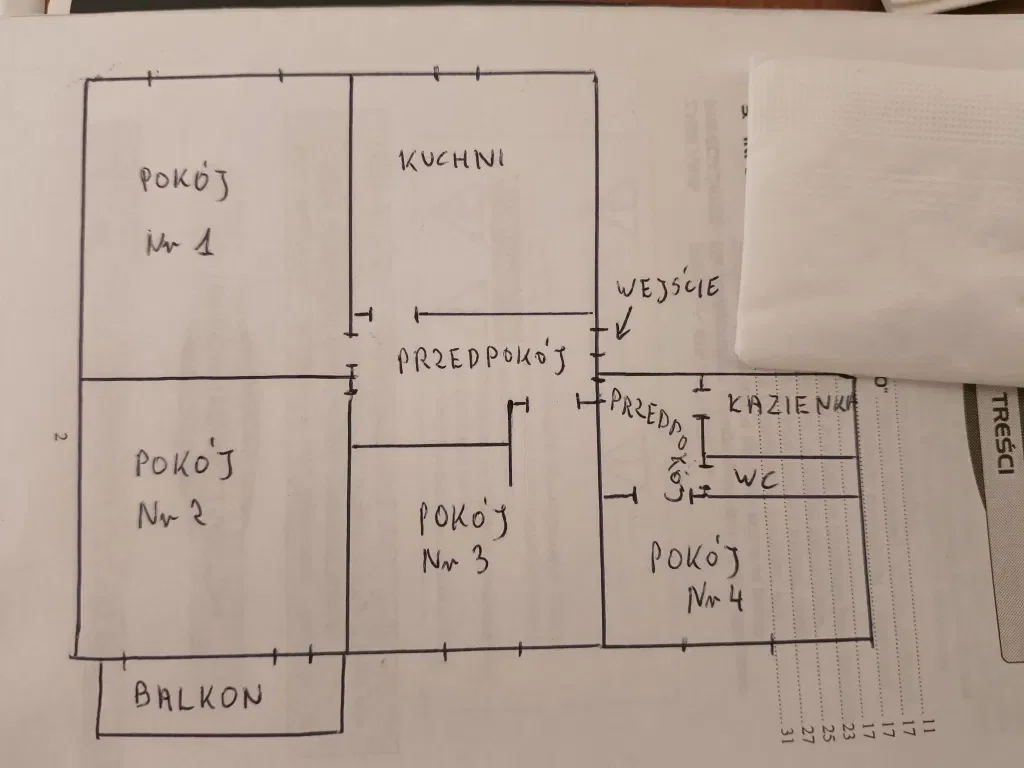 POKÓJ
Nr 1
KUCHNI
WEJŚCIE
PRZEDPOKÓJ
PRZEDPOKÓJ
KAZIENKA
WC
POKÓJ
Nr 2
POKÓJ
Nr 3
POKÓJ
Nr 4
BALKON
2
TREŚCI
11
17
17
17
23
25
27
31